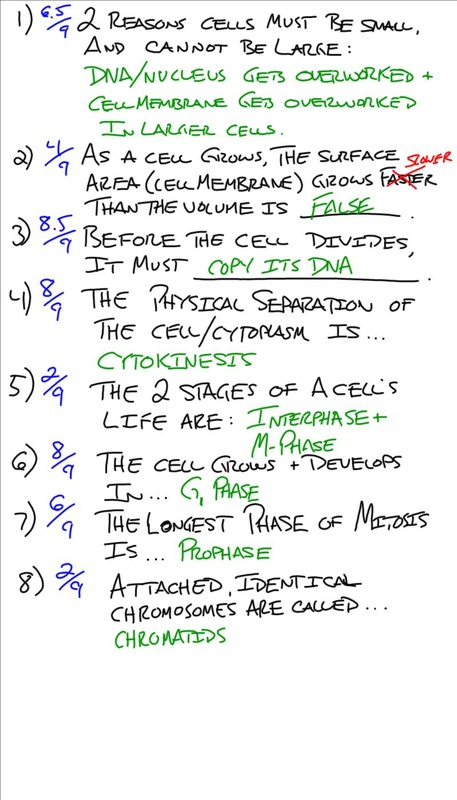 1) 6.5/9 2 REASONS CELLS MUST BE SMALL,
AND CANNOT BE LARGE:
DNA/NUCLEUS GETS OVERWORKED +
CELL MEMBRANE GETS OVERWORKED
IN LARGER CELLS.
2) 4/9 AS A CELL GROWS, THE SURFACE SLOWER
AREA (CELL MEMBRANE) GROWS FASTER
THAN THE VOLUME IS FALSE.
3) 8.5/9 BEFORE THE CELL DIVIDES,
IT MUST COPY ITS DNA.
4) 8/9 THE PHYSICAL SEPARATION OF
THE CELL/CYTOPLASM IS...
CYTOKINESIS
5) 2/9 THE 2 STAGES OF A CELL'S
LIFE ARE: INTERPHASE +
M-PHASE
6) 8/9 THE CELL GROWS + DEVELOPS
IN... G, PHASE
7) 6/9 THE LONGEST PHASE OF MITOSIS
IS... PROPHASE
8) 2/9 ATTACHED, IDENTICAL
CHROMOSOMES ARE CALLED...
CHROMATIDS